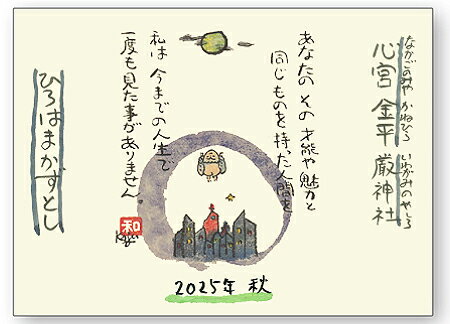 なかごのみや かねひろ いわがみのやしろ
心宮 金平 厳神社
あなたの その 才能や 魅力と
同じ ものを 持った 人間を
私は 今までの 人生で
一度も 見た 事が ありません。
和
ひろはまかずとし
2025年 秋